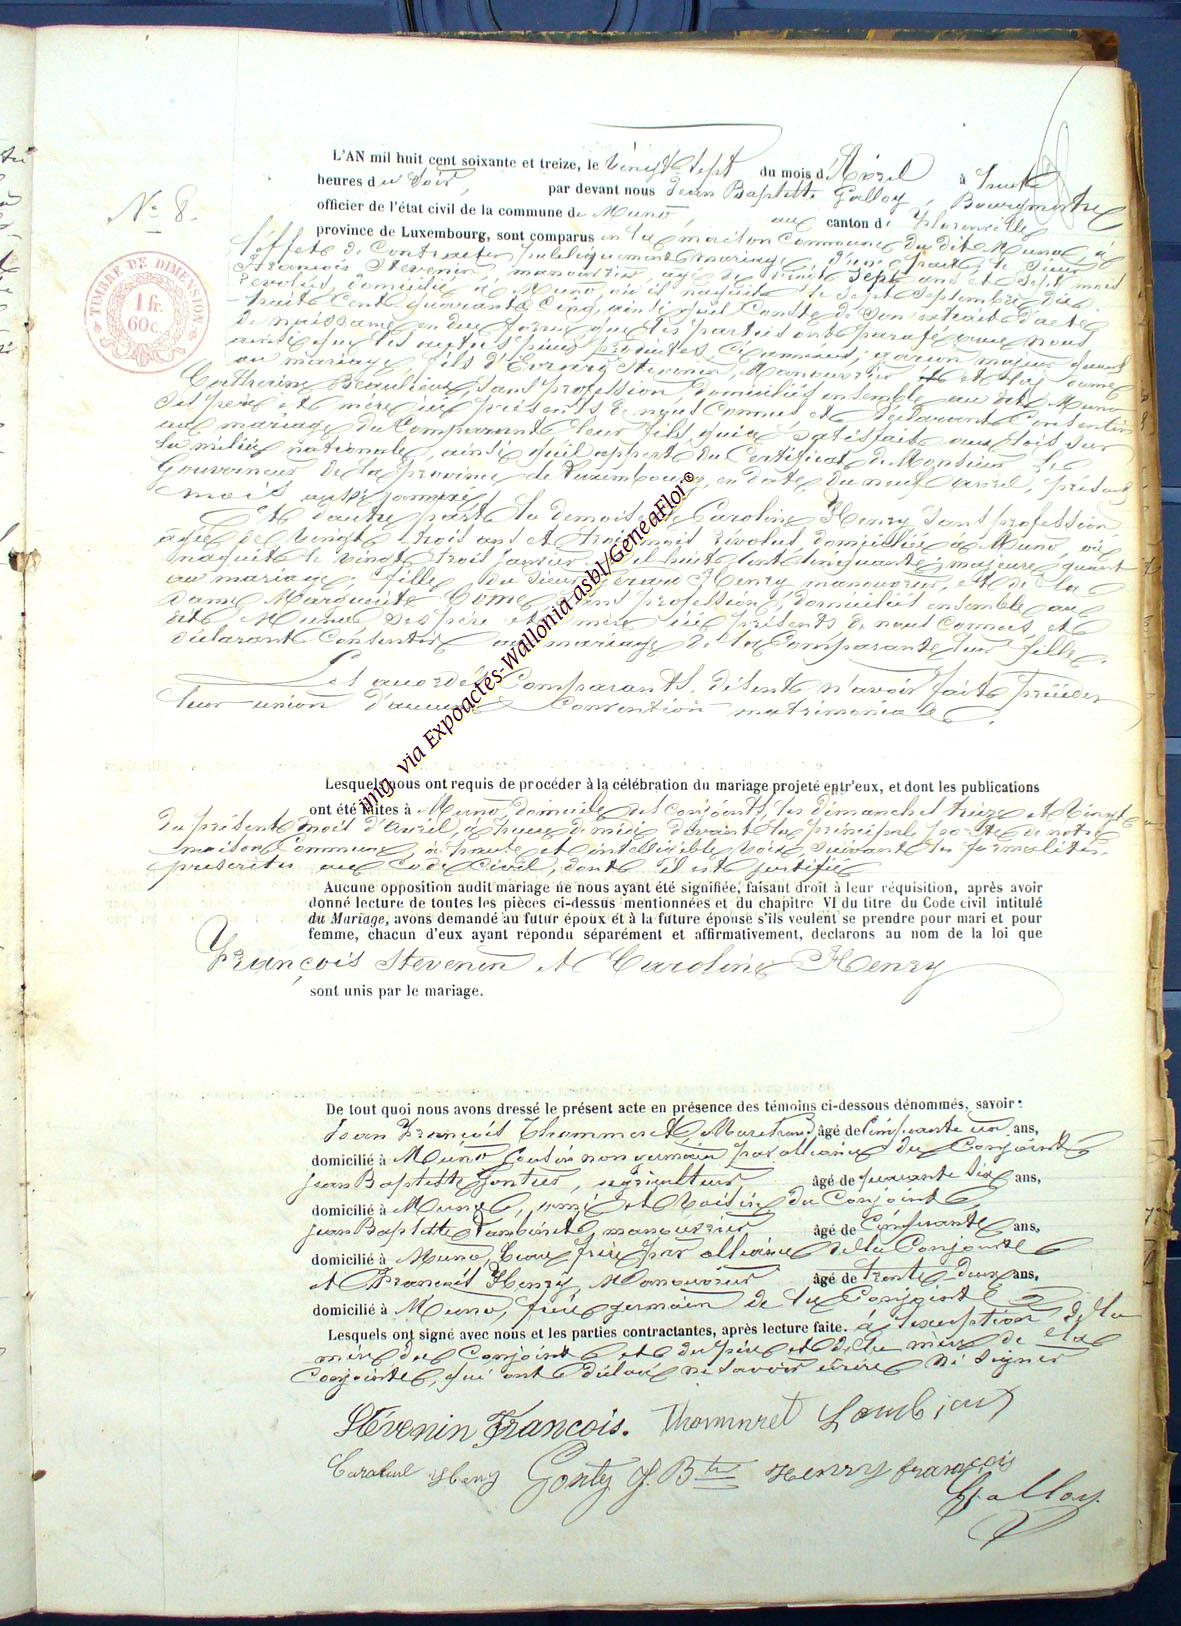 L'AN mil huit cent soixante et treize, le vingt sept du mois d'Avril à huit
heures du soir, par devant nous Jean Baptiste Galloy, Bourgmestre
officier de l'état civil de la commune de Muno, canton de Florenville
province de Luxembourg, sont comparus en la maison Commune du dit Muno, à
l'effet de contracter publiquement mariage, d'une part, le sieur
François Stevenin, manouvrier, agé de vingt sept ans et sept mois
révolus, domicilié à Muno où il naquit le sept Septembre dix
huit cent quarante cinq, ainsi qu'il conste de son extrait d'acte
de naissance en due forme que les parties ont parafé avec nous
ainsi que les autres pièces produites, garçon majeur quant
au mariage, fils d' Stevenin, Manouvrier et dame
Catherine Beaulieu, sans profession, domiciliés ensemble au dit Muno
ses père et mère ici présents de nous connus et déclarant consentir
au mariage du Comparant leur fils, qui a satisfait aux lois sur
la milice nationale, ainsi qu'il appert du Certificat de Monsieur le
Gouverneur de la province de Luxembourg, en date du neuf avril, présent
mois
Et d'autre part la demoiselle Caroline Henry, sans profession,
agée de vingt trois ans et trois mois révolus, domiciliée à Muno, où
naquit le vingt trois Janvier mil huit cent cinquante, majeure quant
au mariage, fille du sieur Henry, manouvrier, et de la
dame Marguerite sans profession, domiciliés ensemble au
dit Muno ses père et mère ici présents de nous connus et
déclarant consentir au mariage de la Comparante leur fille.
Les Comparants disent n'avoir fait précéder
leur union d'aucune Convention matrimoniale.
N° 8.
TIMBRE DE DIMENSION
1 fr.
60c.
img. via Expoactes-Wallonia asbl/GeneaFlor©
Lesquels nous ont requis de procéder à la célébration du mariage projeté entr'eux, et dont les publications
ont été faites à Muno, domicile des conjoints, les dimanches treize et vingt
du présent mois d'avril, à heure de midi devant la principale porte de notre
maison Commune, à haute et intelligible voix suivant les formalités
prescrites au Code Civil, dont il est justifié
Aucune opposition audit mariage ne nous ayant été signifiée, faisant droit à leur réquisition, après avoir
donné lecture de toutes les pièces ci-dessus mentionnées et du chapitre VI du titre du Code civil intitulé
du Mariage, avons demandé au futur époux et à la future épouse s'ils veulent se prendre pour mari et pour
femme, chacun d'eux ayant répondu séparément et affirmativement, declarons au nom de la loi que
François Stevenin et Caroline Henry
sont unis par le mariage.
De tout quoi nous avons dressé le présent acte en présence des témoins ci-dessous dénommés, savoir :
Jean François Thommeret, Marchand âgé de Cinquante un ans,
domicilié à Muno, Cousin non germain par alliance du Conjoint
Jean Baptiste , agriculteur âgé de quarante six ans,
domicilié à Muno, ami et voisin du Conjoint,
Jean Baptiste manouvrier âgé de Cinquante ans,
domicilié à Muno, beau frère par alliance de la Conjointe
et François Henry, Manouvrier âgé de trente deux ans,
domicilié à Muno, frère germain de la Conjointe
Lesquels ont signé avec nous et les parties contractantes, après lecture faite. à l'exception de la
mère du Conjoint et du père et de la mère de la
Conjointe, qui ont déclaré ne savoir écrire ni signer
Stévenin François. Thommeret Lambinet
Caroline Henry Gonty J. Bte Henry françois
Galloy